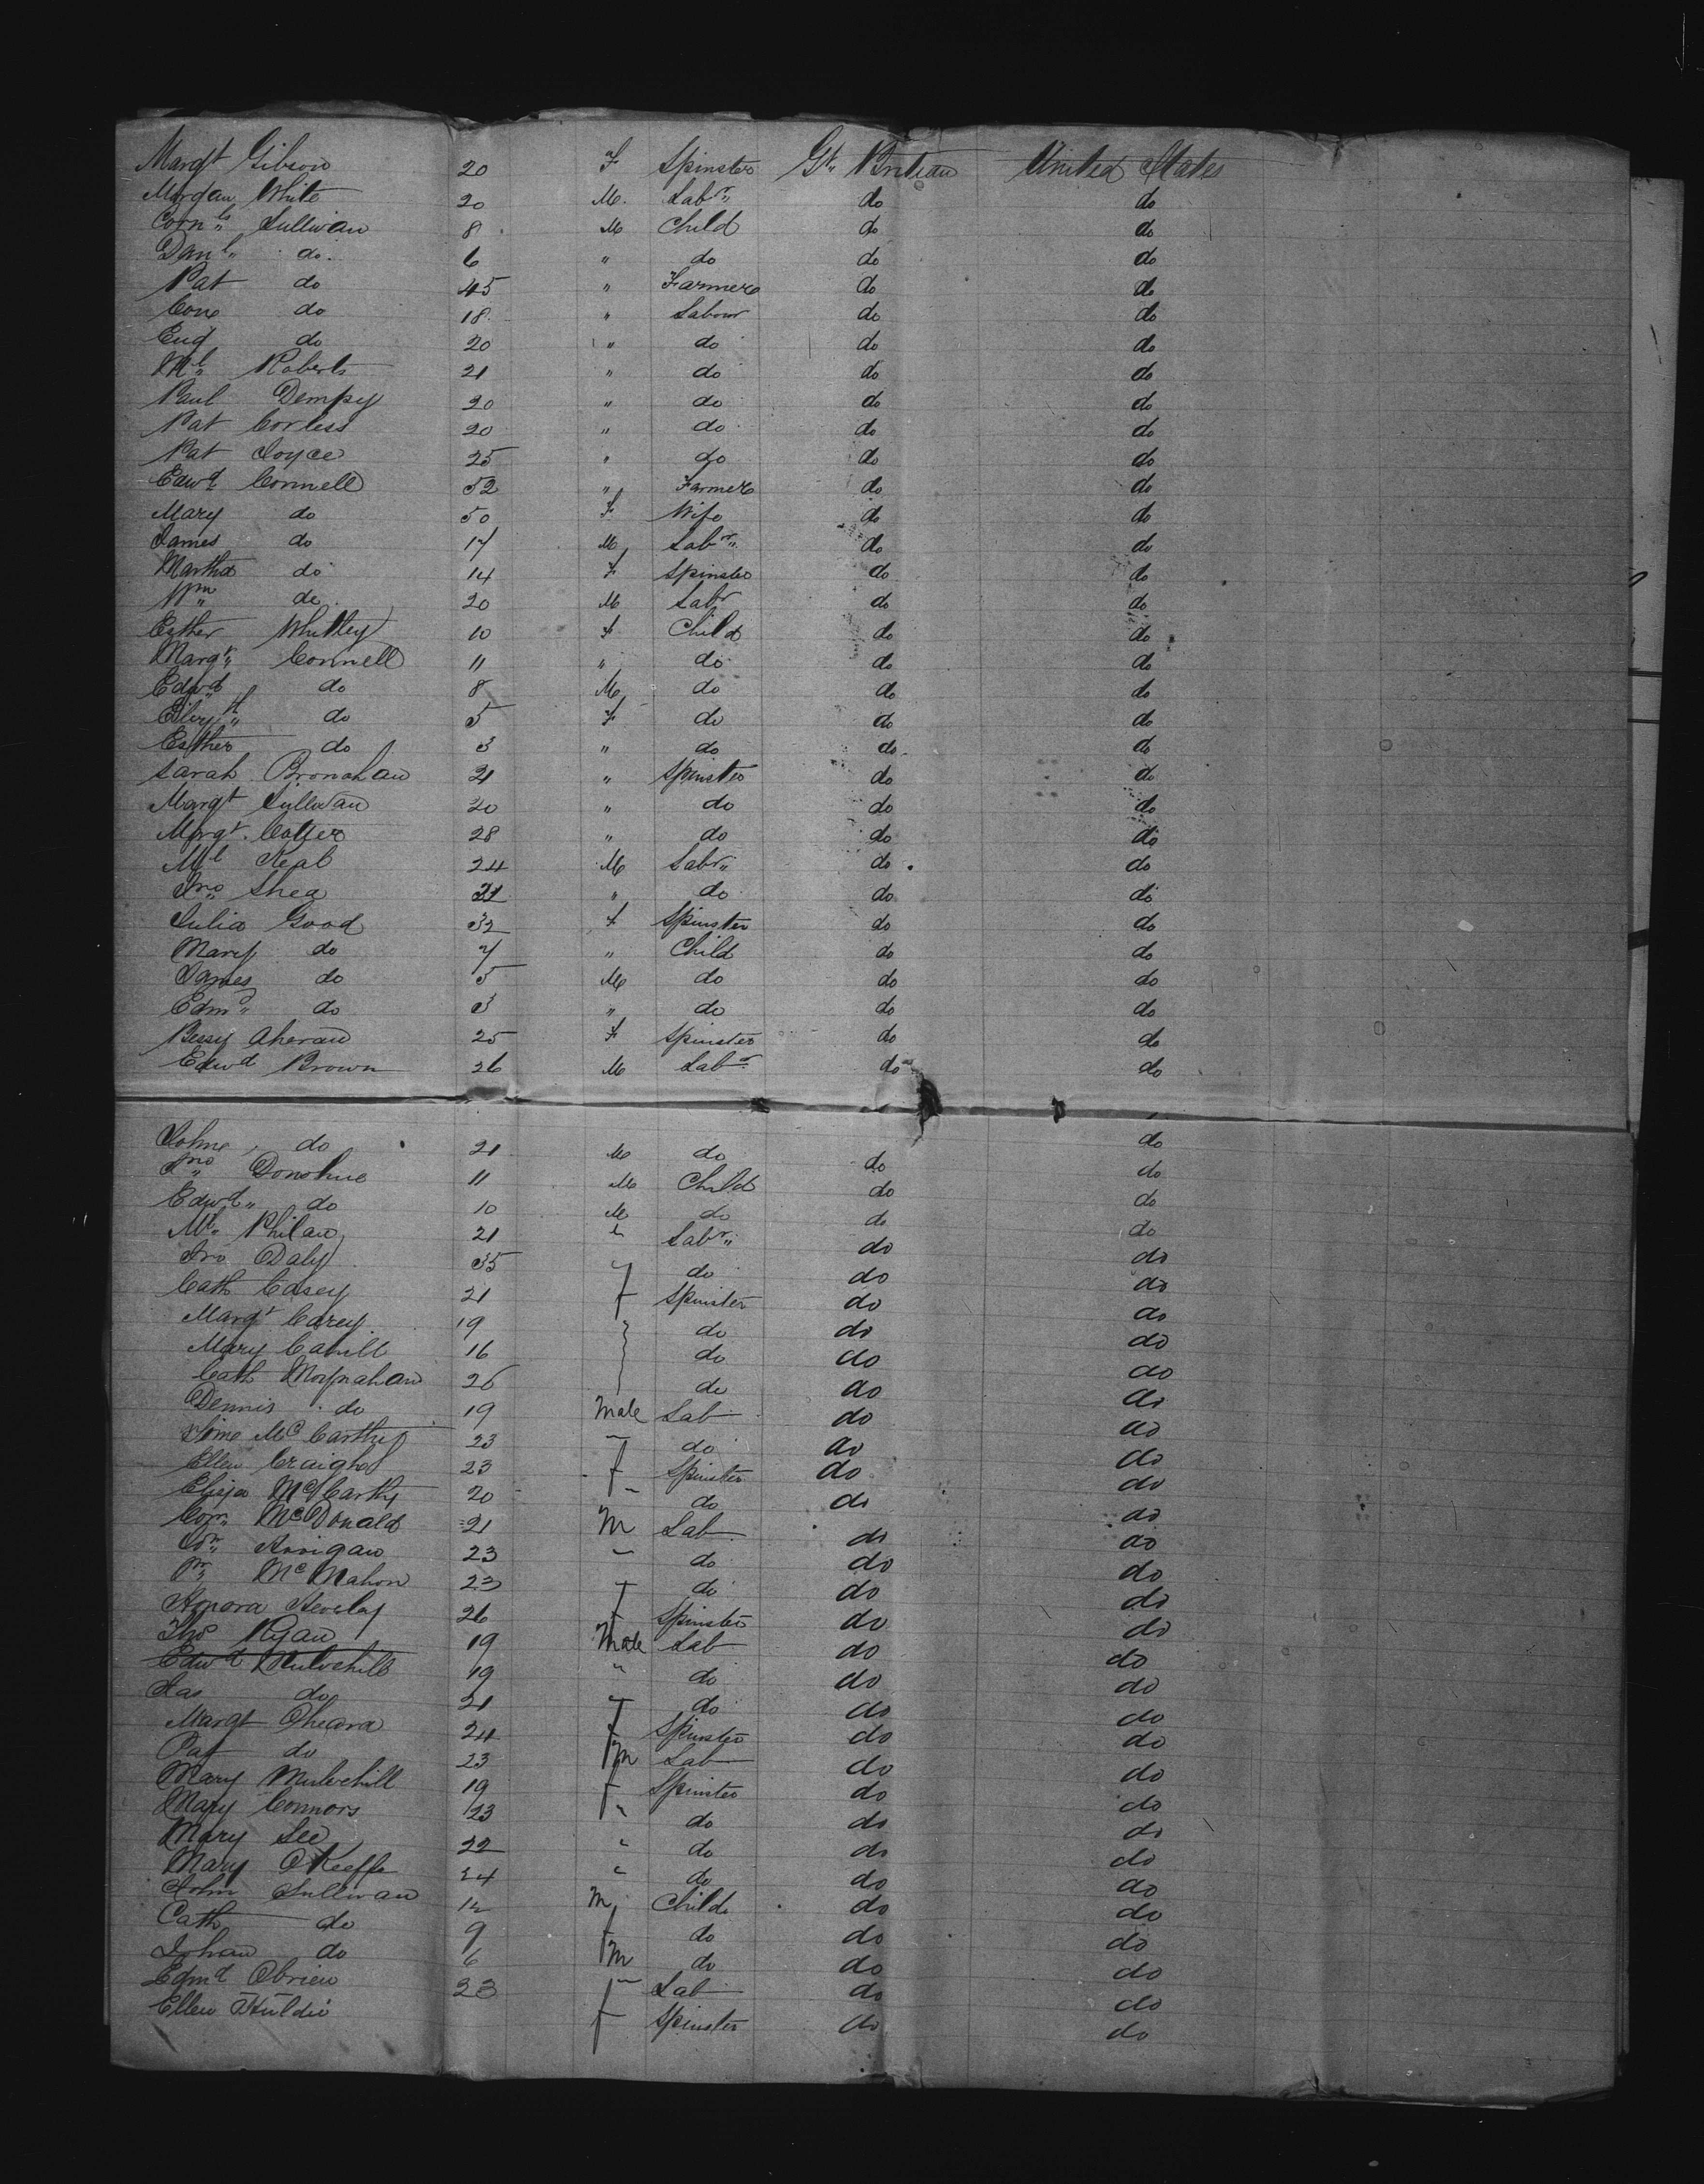 Margt Gibson 20 F Spinster Gt. Britain United States
Morgan White 20 M. Labr. do do
Corns. Sullivan 8 M Child do do
Danl. do. 6 " do do do
Pat do 45 " Farmer do do
Con do 18 " Labour do do
Eug do 20 " do do do
Ml. Roberts 21 " do do do
Paul Dempsy 20 " do do do
Pat Corless 20 " do do do
Pat Joyce 25 " do do do
Edwd Connell 52 " Farmer do do
Mary do 50 F Wife do do
James do 17 M Labr. do do
Martha do 14 F Spinster do do
Wm do 20 M Labr do do
Esther Whitley 10 F Child do do
Margt. Connell 11 " do do do
Edwd do 8 M do do do
Elizth. do 5 F do do do
Esther do 3 " do do do
Sarah Bronahan 21 " Spinster do do
Margt Sullivan 20 " do do do
Margt. Cotter 28 " do do do
Ml 24 M Labr. do do
Jno Shea 21 " do do do
Julia Good 32 F Spinster do do
Mary do 7 " Child do do
James do 5 M do do do
Edmd. do 3 " do do do
Bessy Aheran 25 F Spinster do do
Edwd Brown 26 M Labr. do do
John do 21 M do do do
Jno. Donohue 11 M Child do do
Edwd. do 10 M do do do
Ml. Philan 21 " Labr. do do
Jno Daly 35 " do do do
Cath Casey 21 f Spinster do do
Margt Carey 19 do do do
Mary Cahill 16 do do do
Cath Moynahan 26 do do do
Dennis do 19 Male Lab do do
McCarthy 23 " do do do
Ellen 23 f Spinster do do
Eliza McCarthy 20 " do do do
Cor. McDonald 21 M Lab do do
23 " do do do
McMahon 23 " do do do
Honora 26 f Spinster do do
Thos Ryan 19 Male Lab do do
Edwd Mulvehill 19 " do do do
Jas do 21 " do do do
Margt Oheara 24 f Spinster do do
Pat do 23 M Lab do do
Mary Mulvehill 19 f Spinster do do
Mary Connors 23 " do do do
Mary Lee 22 " do do do
Mary OKeeffe 24 " do do do
John Sullivan 12 M Child do do
Cath do 9 f do do do
Johan do 6 M do do do
Edmd Obrien 23 " Lab do do
Ellen f Spinster do do